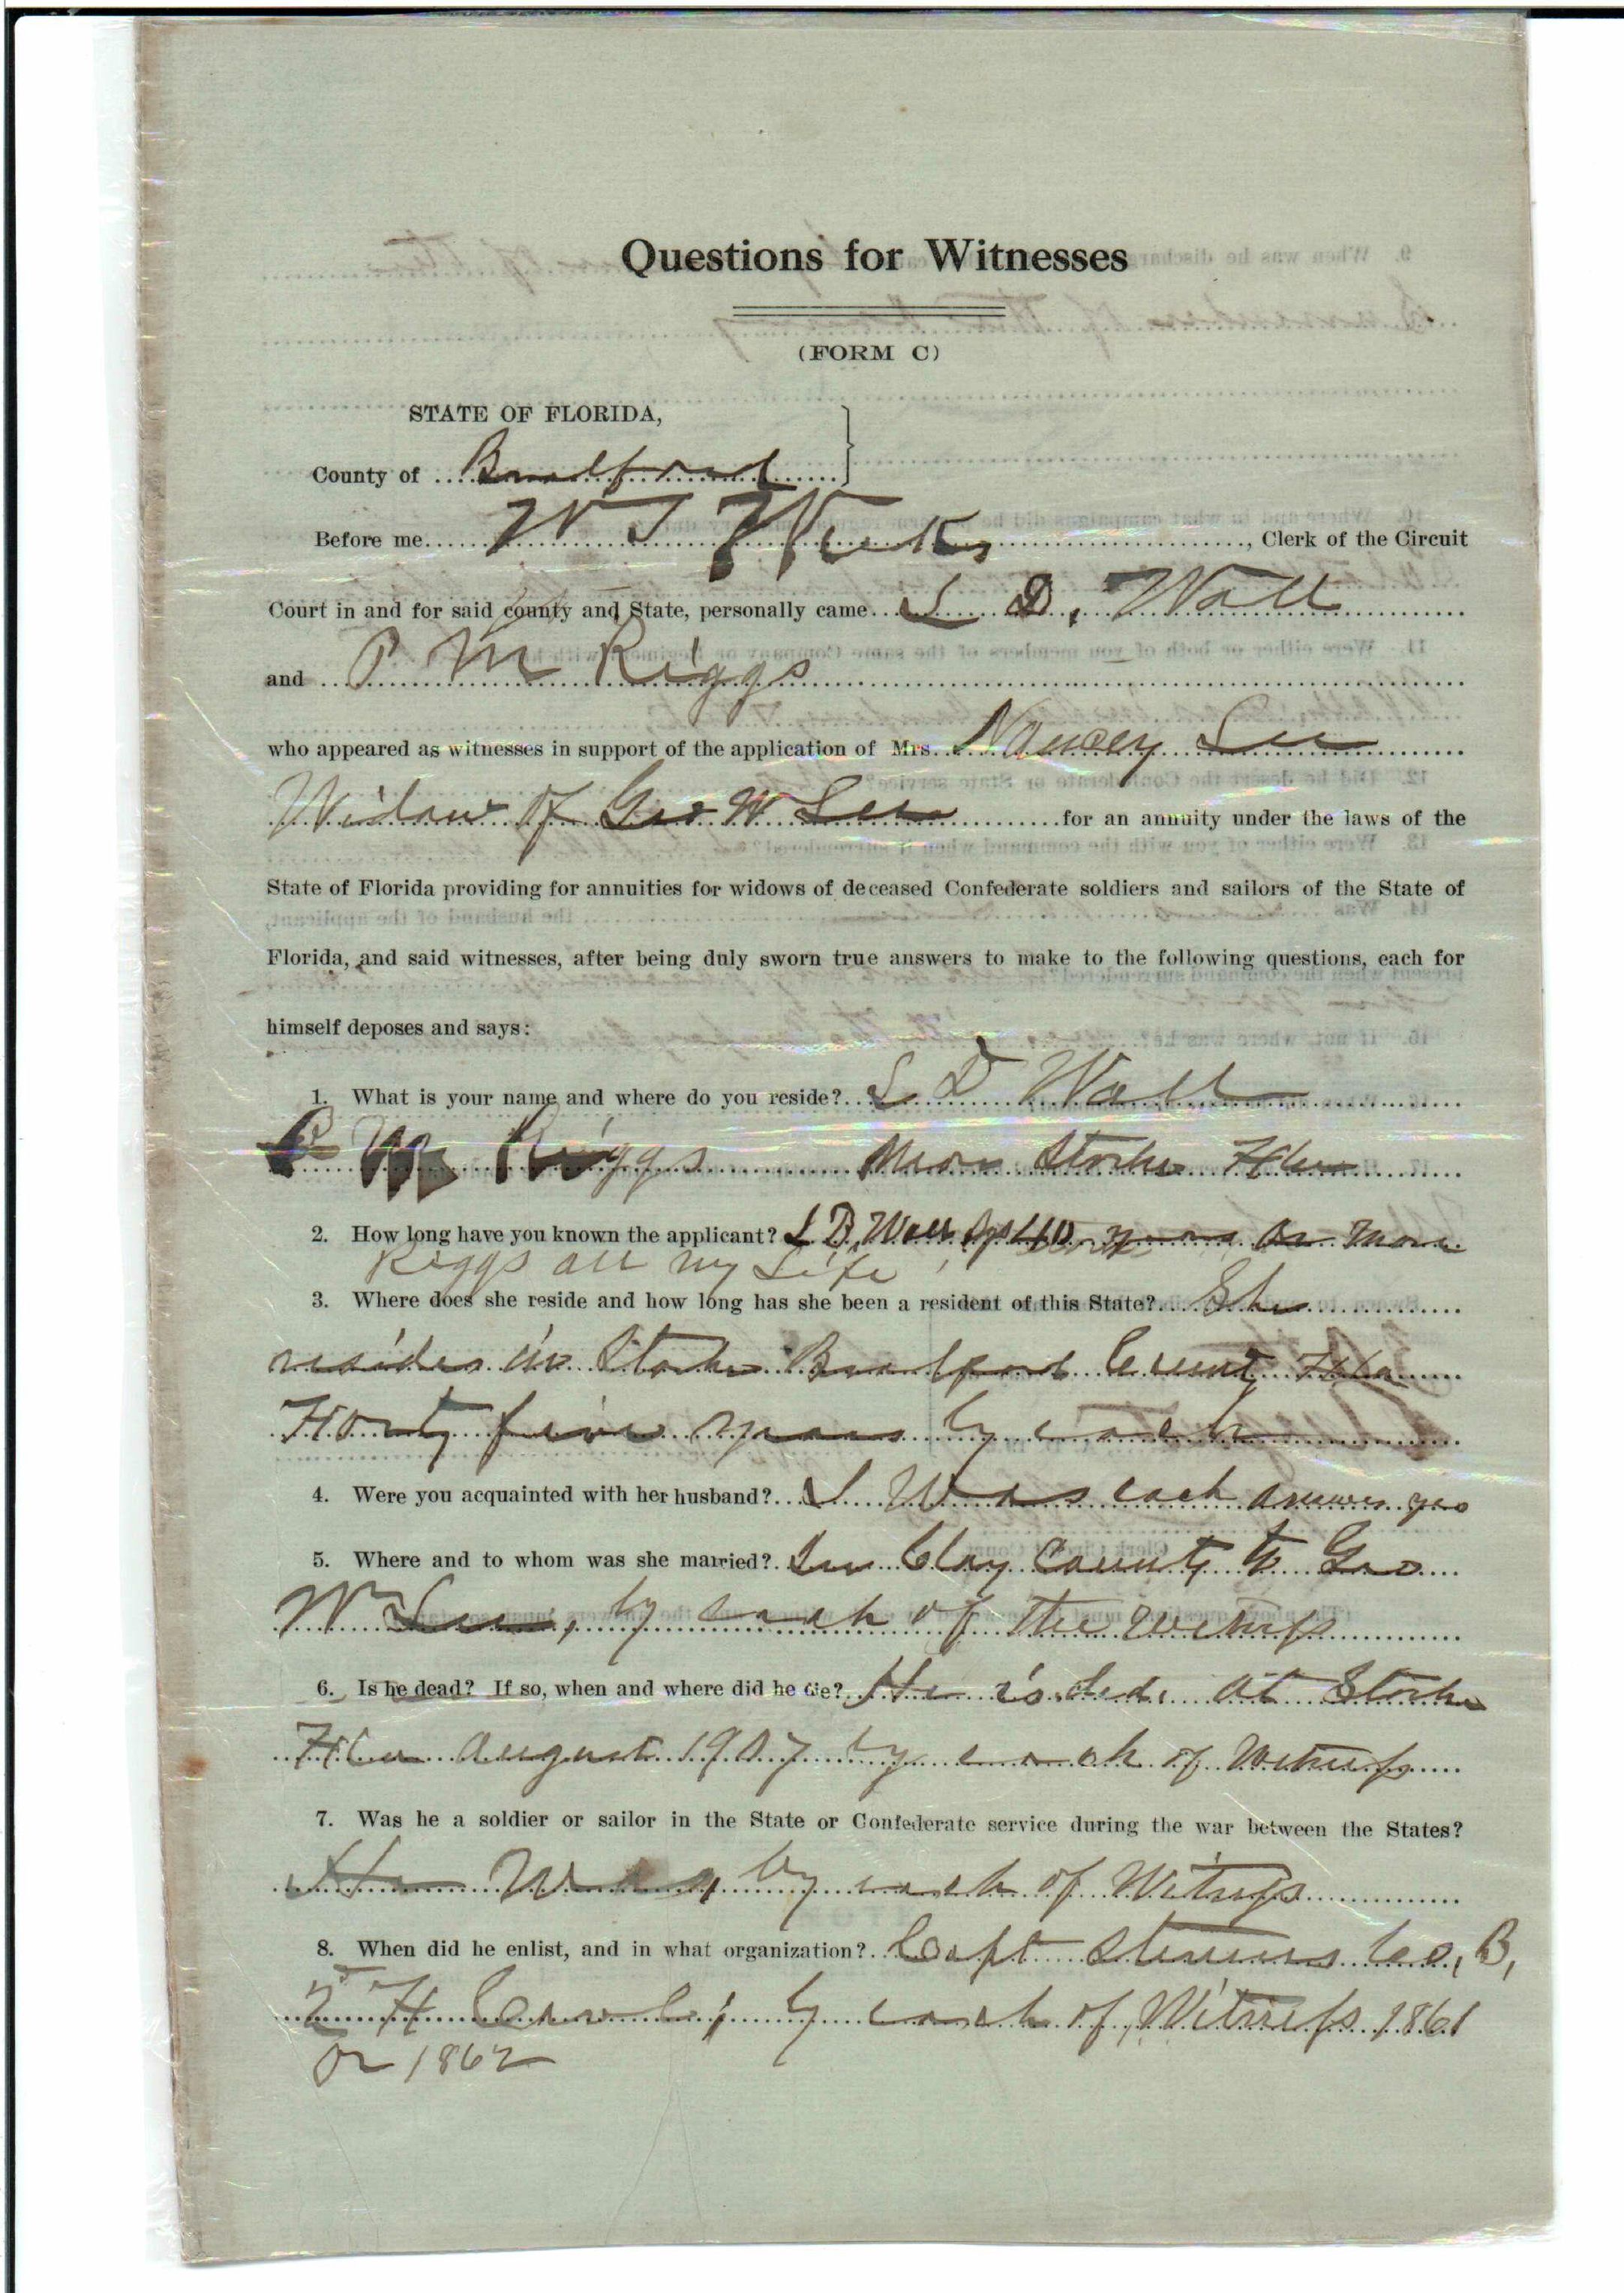 Questions for Witnesses
(FORM C)
STATE OF FLORIDA,
County of Bradford
Before me W T Weeks, Clerk of the Circuit
Court in and for said county and State, personally came L D. Wall
and P M Riggs
who appeared as witnesses in support of the application of Mrs. Nancy Lee
Widow of Geo W Lee for an annuity under the laws of the
State of Florida providing for annuities for widows of deceased Confederate soldiers and sailors of the State of
Florida, and said witnesses, after being duly sworn true answers to make to the following questions, each for
himself deposes and says:
1. What is your name and where do you reside? L D Wall
P M Riggs Near Starke Fla
2. How long have you known the applicant? L D, Wall 40 years or more
Riggs all my Life
3. Where does she reside and how long has she been a resident of this State? She
resides in Starke Bradford County Fla
Forty five years by each
4. Were you acquainted with her husband? I Was each answers yes
5. Where and to whom was she married? In Clay County to Geo
W Lee, by each of the Witness
6. Is he dead? If so, when and where did he die? He is ded. at Starke
Fla august 1907 by each of Witness
7. Was he a soldier or sailor in the State or Confederate service during the war between the States?
He Was, by each of Witness
8. When did he enlist, and in what organization? Capt Stevens Co, B,
2 F Cavl; by each of Witness 1861
or 1862